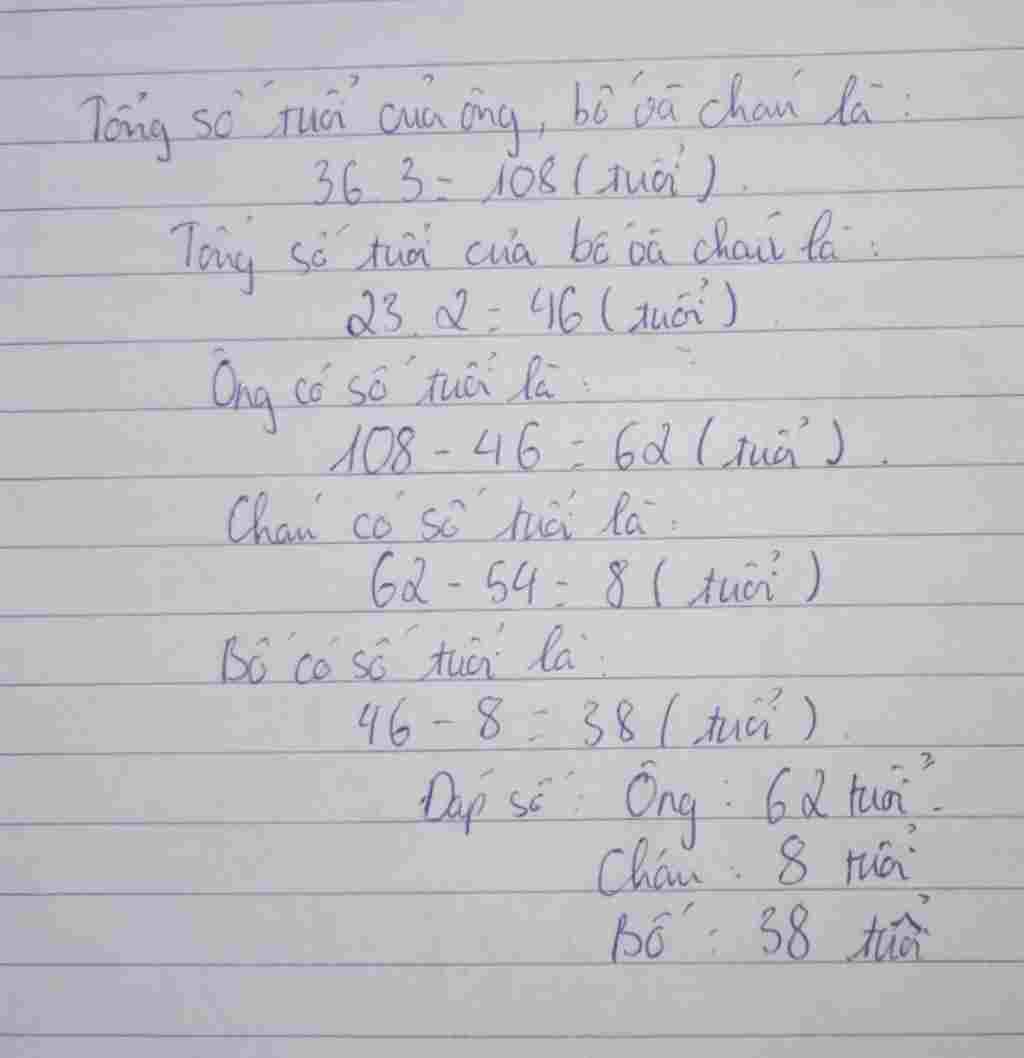 Tổng số tuổi của ông, bố và cháu là:
36.3 = 108 (tuổi).
Tổng số tuổi của bố và cháu là:
23.2 = 46 (tuổi)
Ông có số tuổi là:
108 - 46 = 62 (tuổi).
Cháu có số tuổi là:
62 - 54 = 8 (tuổi)
Bố có số tuổi là:
46 - 8 = 38 (tuổi).
Đáp số: Ông: 62 tuổi.
Cháu: 8 tuổi
Bố: 38 tuổi